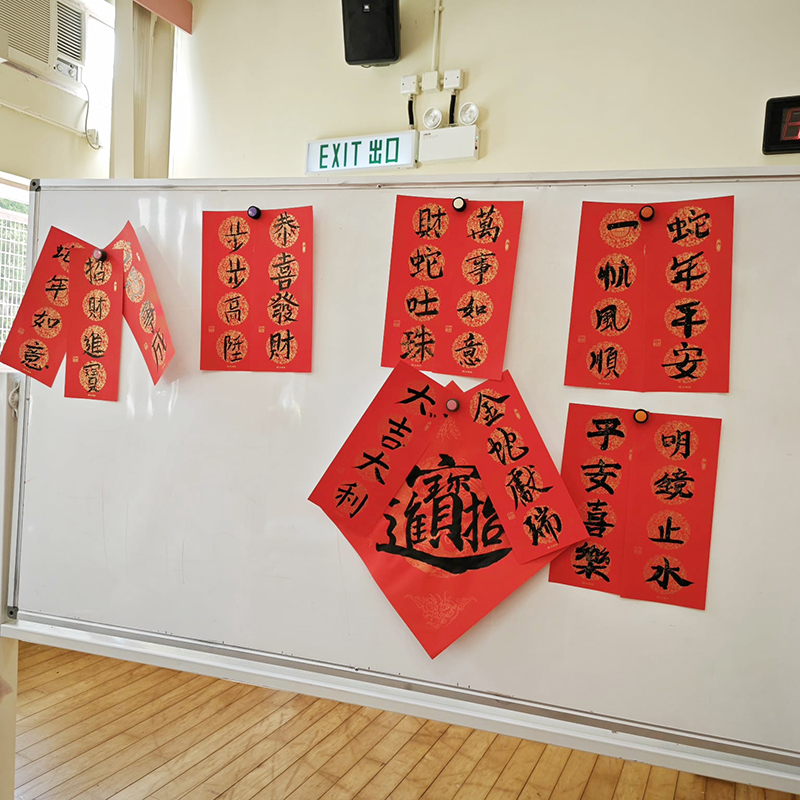 EXIT 出口
蛇年如意
招財進寶
事成
恭喜發財
步步高陞
萬事如意
財蛇吐珠
蛇年平安
一帆風順
金蛇獻瑞
大吉大利
招財進寶
明鏡止水
平安喜樂